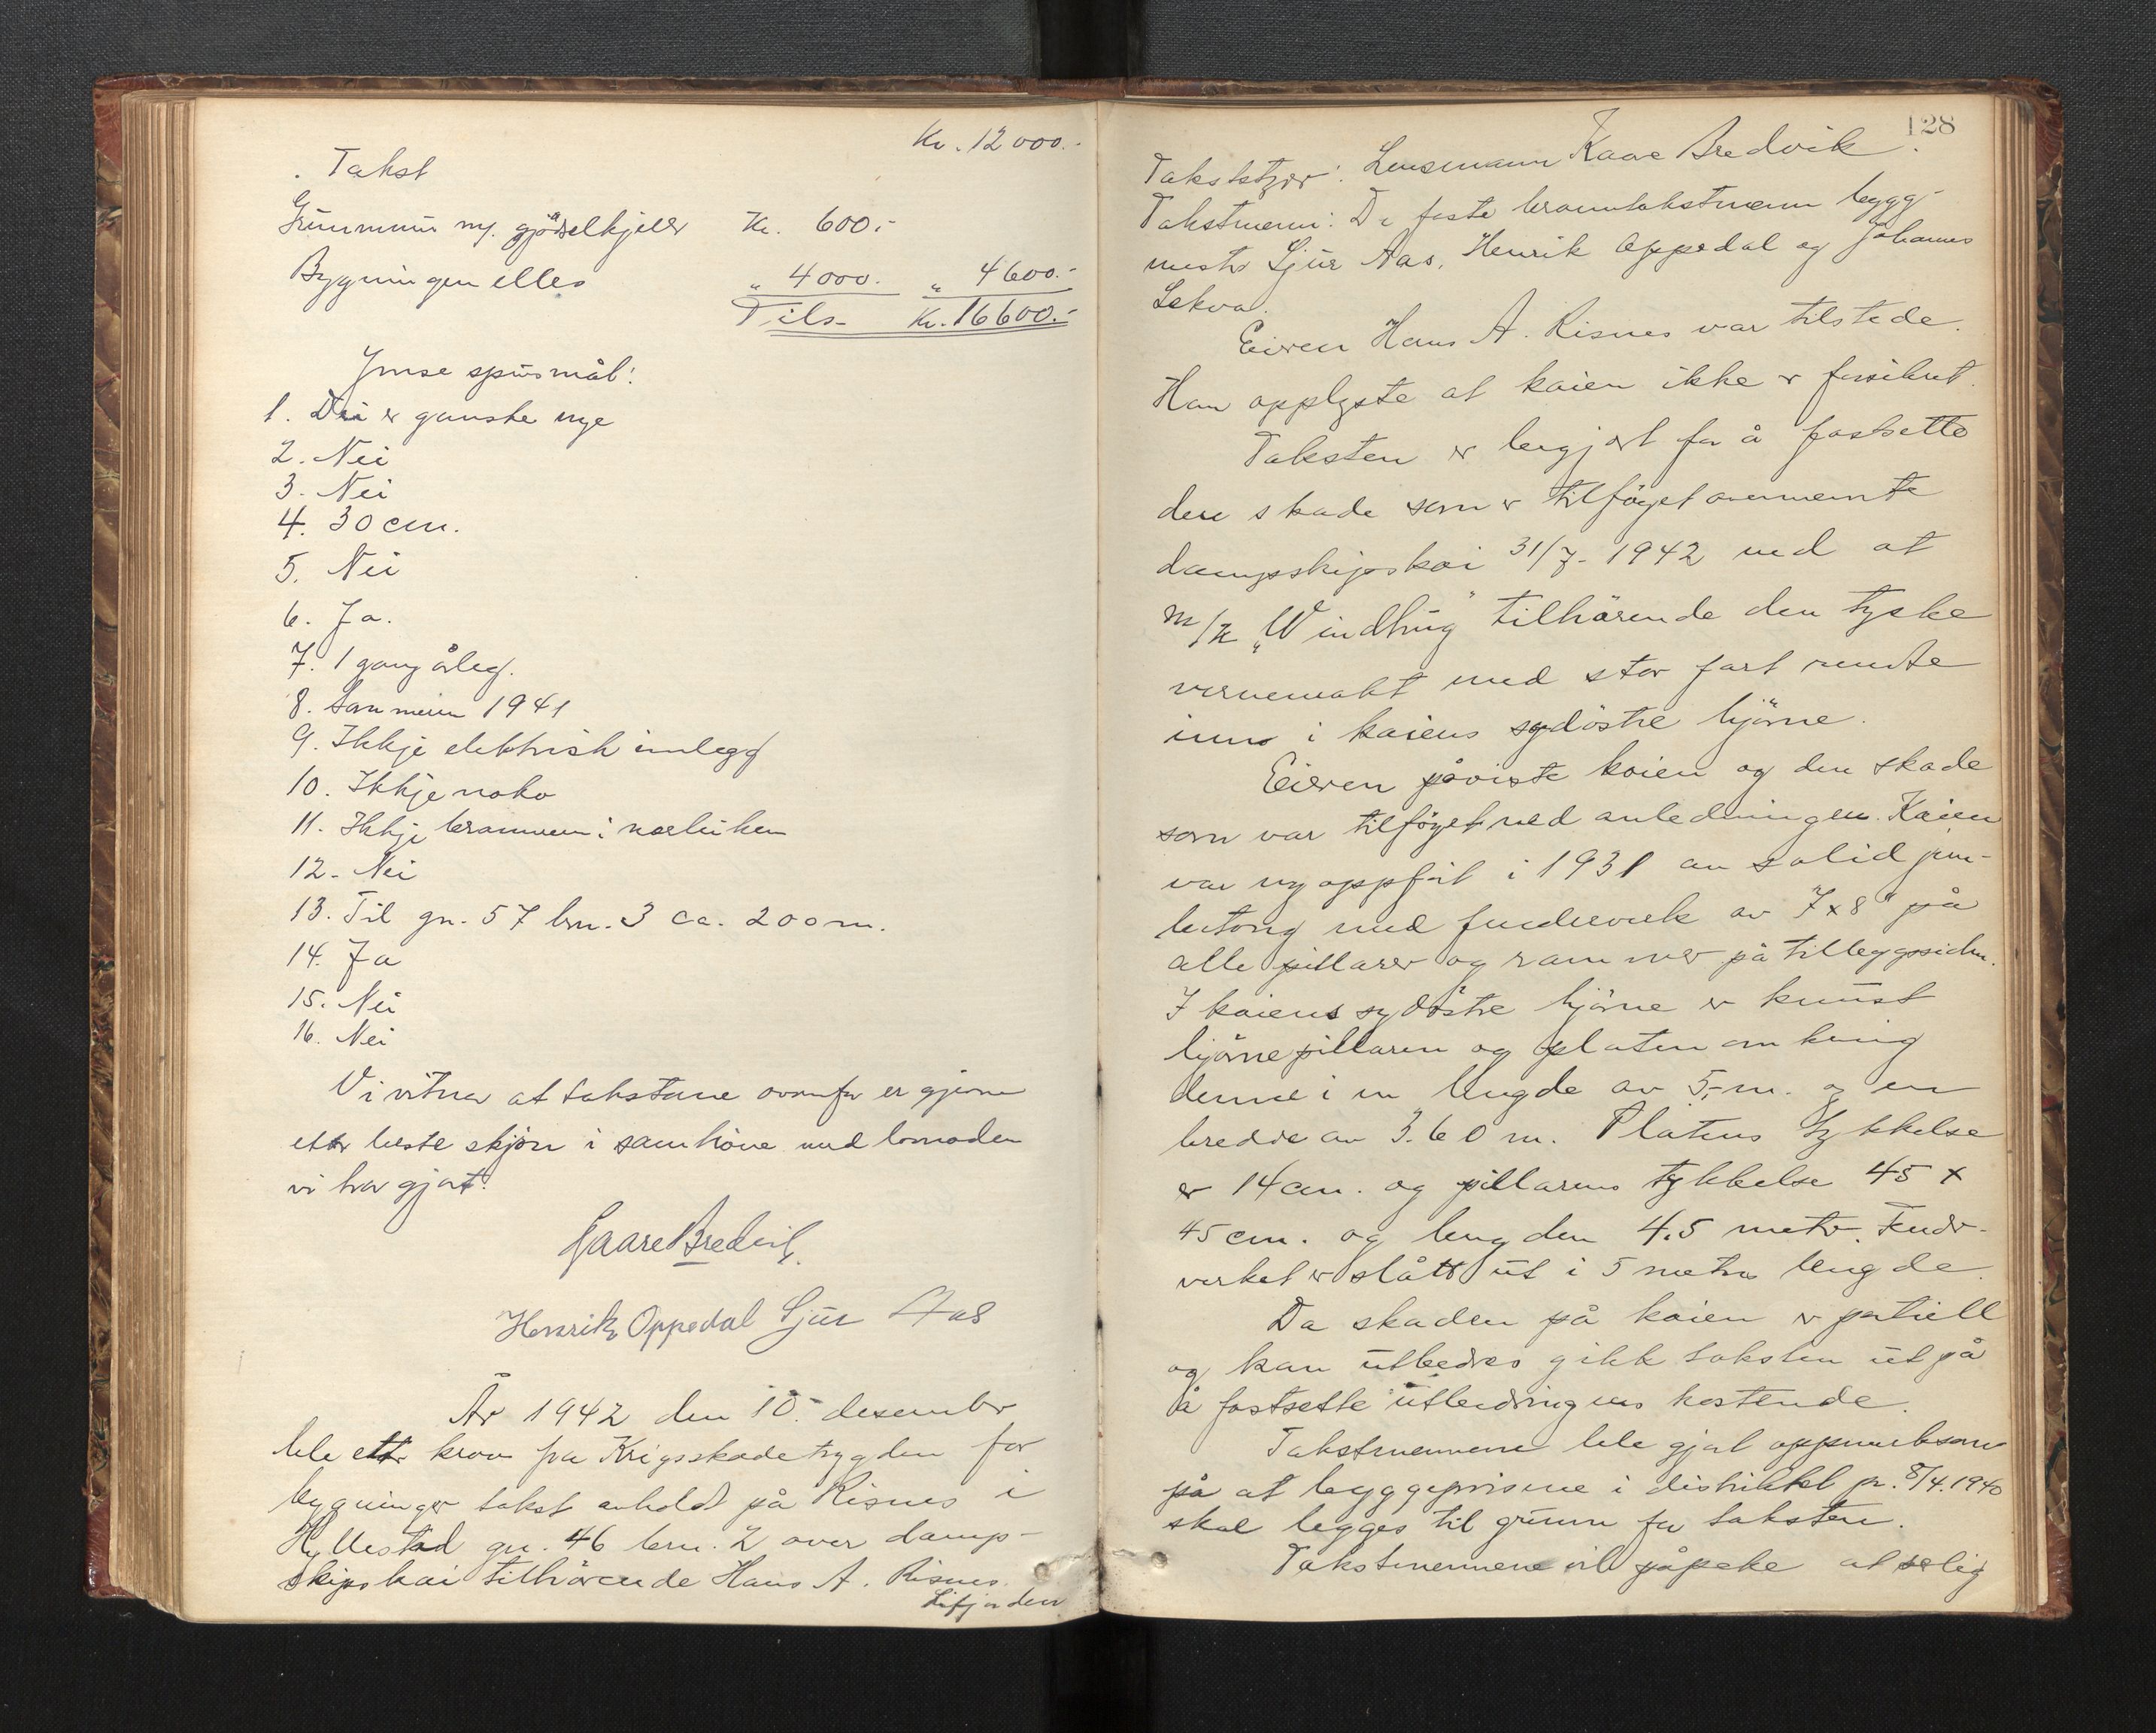 Kr. 12 000.-
Takst
Grunnmur m/. gjødselkjellr Kr. 600.-
Bygningen elles " 4000. " 4600.-
Tils. Kr. 16600.-
Ymse spursmål:
1. Dei er ganske nye
2. Nei
3. Nei
4. 30 cm.
5. Nei
6. Ja.
7. 1 gang årleg.
8. Sommeren 1941
9. Ikkje elektrisk innlegg
10. Ikkje noko
11. Ikkje brannvern i nærleiken
12. Nei
13. Til gn. 57 brn. 3 ca. 200 m.
14. Ja
15. Nei
16. Nei
Vi vitnar at takstane ovanfor er gjevne
etter beste skjøn i samhøve med
vi har gjort.
Kaare Bredvik.
Henrik Oppedal Sjur Aas
År 1942 den 10. desember
ble etter krav fra Krigsskadetrygden for
bygninger takst avholdt på Risnes i
Hyllestad gn. 46 brn. 2 over damp-
skipskai tilhørende Hans A. Risnes.
Lifjorden
128
Takststyrer: Lensmann Kaare Bredvik.
Takstmenn: De faste branntakstmenn bygg-
mestr Sjur Aas, Henrik Oppedal og Johannes
Lekva.
Eieren Hans A. Risnes var tilstede.
Han opplyste at kaien ikke er forsikret.
Taksten er begjært for å fastsette
den skade som er tilføyet ovennemnte
dampskipskai 31/7-1942 ved at
m/k „Windhug" tilhørende den tyske
vernemakt med stor fart rente
inn i kaiens sydøstre hjørne.
Eieren påviste kaien og den skade
som var tilføyet ved anledningen. Kaien
var ny oppført i 1931 av solid jern-
betong med fenderverk av 7x8" på
alle pillarer og rammer på tilleggssiden.
I kaiens sydøstre hjørne er knust
hjørnepillaren og platen omkring
denne i en lengde av 5,- m. og en
bredde av 3.60 m. Platens tykkelse
er 14 cm. og pillarens tykkelse 45 x
45 cm. og lengden 4,5 meter. Fender-
verket er slått ut i 5 meters lengde.
Da skaden på kaien er partiell
og kan utbedres gikk taksten ut på
å fastsette utbedringens kostende.
Takstmennene ble gjort oppmerksom
på at byggeprisene i distriktet pr. 8/4.1940
skal legges til grunn for taksten.
Takstmennene vil påpeke at særlig